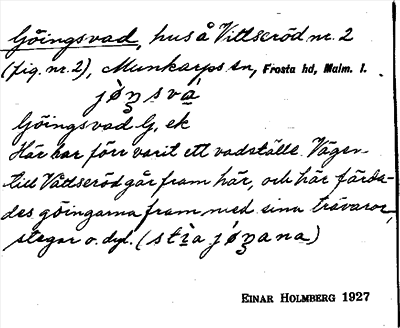 Göingsvad, hus å Vittseröd nr. 2
(fig. nr. 2), Munkarps sn, Frosta hd, Malm. l.
Göingsvad G, ek
Här har förr varit ett vadställe. Vägen
till Vittseröd går fram här, och här färda-
des göingarna fram med sina trävaror,
stegar o. dyl.
EINAR HOLMBERG 1927